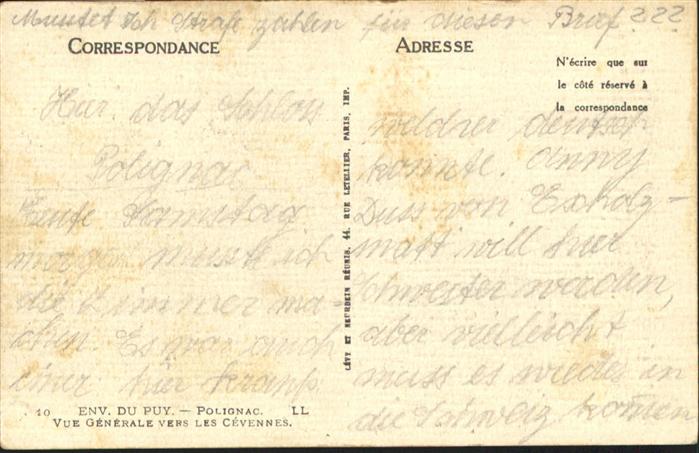 Musstet Ich Strafe zahlen für diesen Brief ???
CORRESPONDANCE
ADRESSE
N'écrire que sur
le côté réservé à
la correspondance
Hier das Schloss
Polignac
Heute Samstag
morgen musste ich
die Zimmer ma-
chen. Es war auch
einer hier krank
LÉVY ET NEURDEIN RÉUNIS, 44, RUE LETELLIER, PARIS, IMP.
welcher deutsch
konnte. Anny
Duss von Escholz-
matt will hier
Schwester werden,
aber vielleicht
muss es wieder in
die Schweiz kommen
10 ENV. DU PUY. — POLIGNAC. LL
VUE GÉNÉRALE VERS LES CÉVENNES.